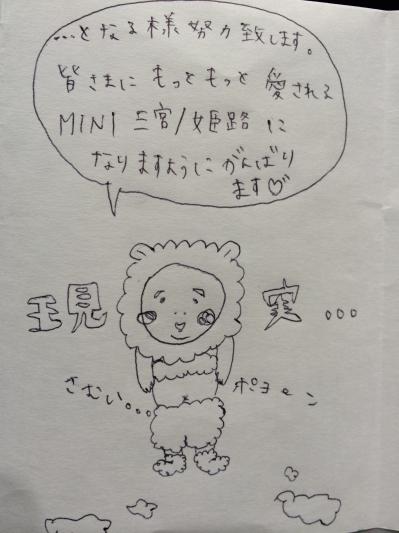 …となる様努力致します。
皆さまにもっともっと愛される
MINI 三宮/姫路に
なりますようにがんばり
ます♡
現実…
さむい…
ポヨ〜ン